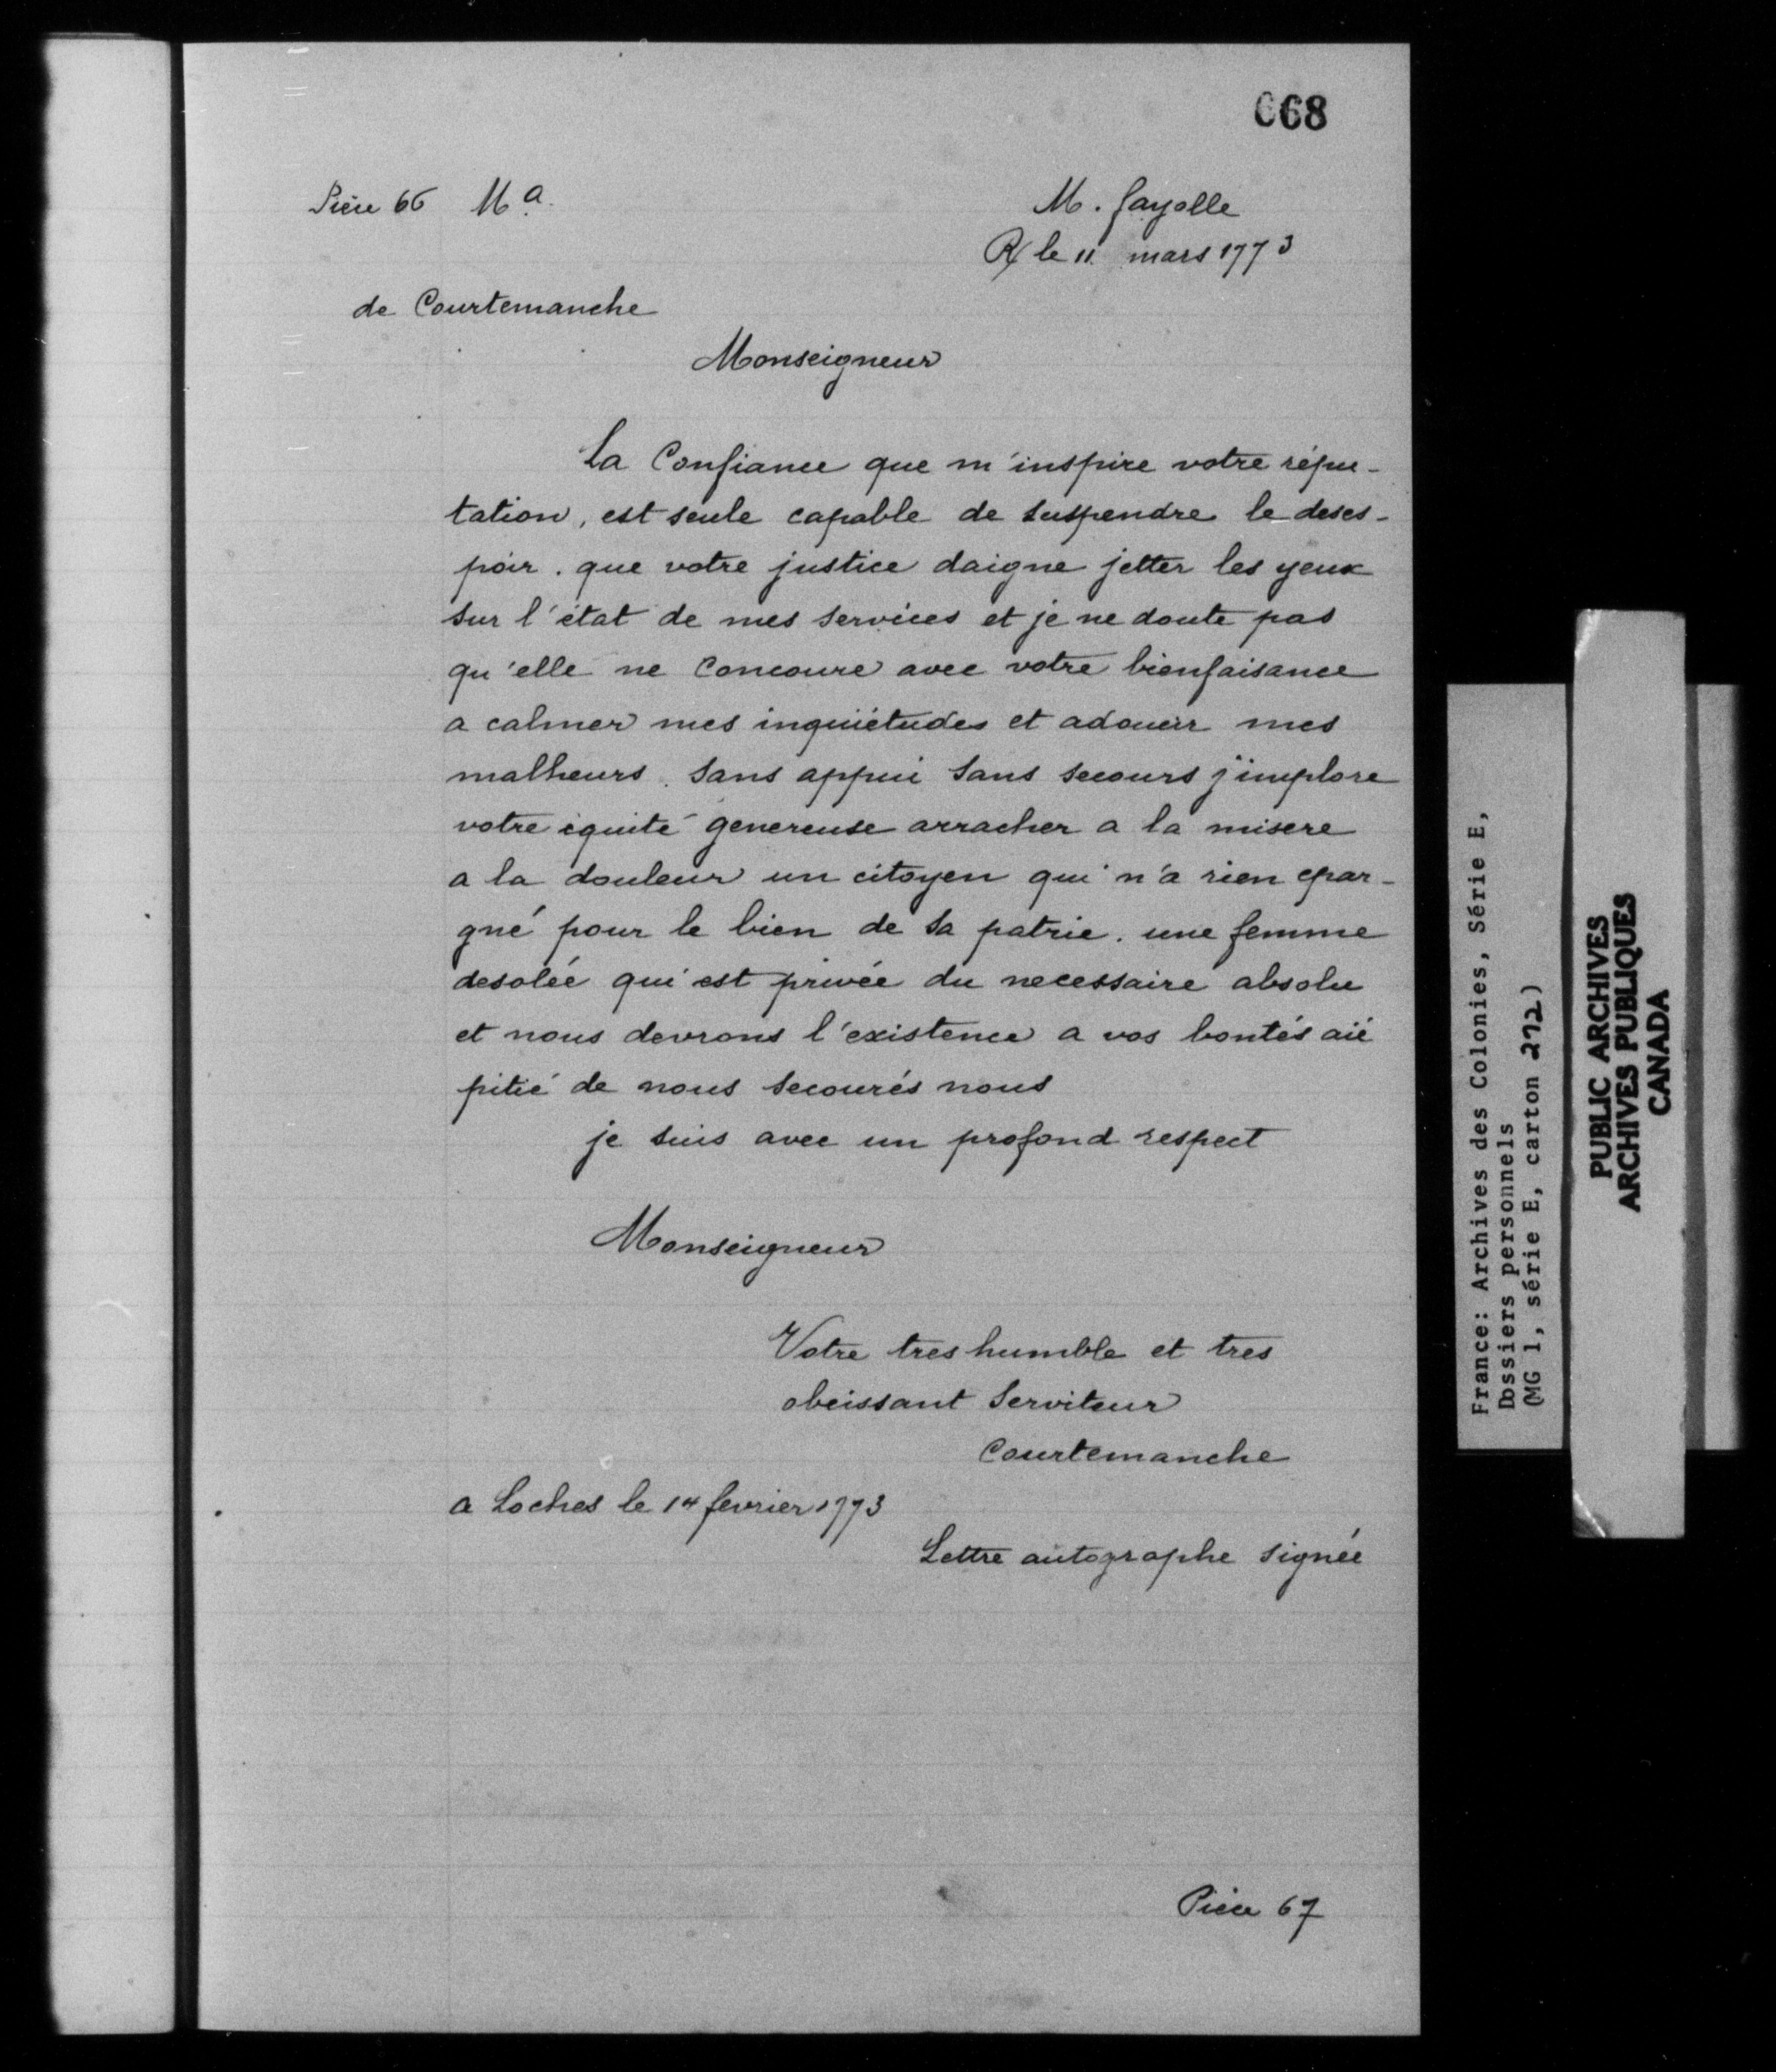 068
Pièce 66 Ma.
M. fayolle
R le 11 mars 1773
de Courtemanche
Monseigneur
La Confiance que m'inspire votre répu-
tation, est seule capable de suspendre le deses-
poir. que votre justice daigne jetter les yeux
sur l'état de mes services et je ne doute pas
qu'elle ne concoure avec votre bienfaisance
a calmer mes inquiétudes et adoucir mes
malheurs. sans appui sans secours j'implore
votre équité genereuse arracher a la misere
a la douleur un citoyen qui n'a rien epar-
gné pour le bien de sa patrie. une femme
desolée qui est privée du necessaire absolu
et nous devrons l'existence a vos bontés aiié
pitié de nous secourés nous
je suis avec un profond respect
Monseigneur
Votre tres humble et tres
obeissant Serviteur
Courtemanche
a Loches le 14 fevrier 1773
Lettre autographe signée
Pièce 67
France: Archives des Colonies, Série E,
Dossiers personnels
(MG 1, série E, carton 272)
PUBLIC ARCHIVES
ARCHIVES PUBLIQUES
CANADA